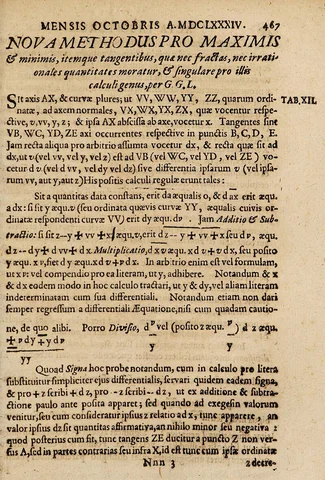 MENSIS OCTOBRIS A. MDCLXXXIV. 467
NOVA METHODUS PRO MAXIMIS
& minimis, itemque tangentibus, quæ nec fractas, nec irrati-
onales quantitates moratur, & singulare pro illis
calculi genus, per G. G. L.
Sit axis AX, & curvæ plures; ut VV, WW, YY, ZZ, quarum ordi- TAB. XII.
natæ, ad axem normales, VX, WX, YX, ZX, quæ vocentur respe-
ctive, v, w, y, z; & ipsa AX abscissa ab axe, vocetur x. Tangentes sint
VB, WC, YD, ZE axi occurrentes respective in punctis B, C, D, E.
Jam recta aliqua pro arbitrio assumta vocetur dx, & recta quæ sit ad
dx, ut v (vel vv, vel y, vel z) est ad VB (vel WC, vel YD, vel ZE) vo-
cetur d v (vel d vv, vel dy vel dz) sive differentia ipsarum v (vel ipsa-
rum vv, aut y, aut z) His positis calculi regulæ erunt tales:
Sit a quantitas data constans, erit da æqualis 0, & d ax erit æqu.
a dx: si sit y æqu. v (seu ordinata quævis curvæ YY, æqualis cuivis or-
dinatæ respondenti curvæ VV) erit dy æqu. dv. Jam Additio & Sub-
tractio: si sit z -- y ✠ vv ✠ x æqu. v, erit dz -- y ✠ vv ✠ x seu dv, æqu.
dz -- dy ✠ dvv ✠ dx. Multiplicatio, d xv æqu. x d v ✠ v d x, seu posito
y æqu. xv, fiet d y æqu. x d v ✠ v d x. In arbitrio enim est vel formulam,
ut xv, vel compendio pro ea literam, ut y, adhibere. Notandum & x
& dx eodem modo in hoc calculo tractari, ut y & dy, vel aliam literam
indeterminatam cum sua differentiali. Notandum etiam non dari
semper regressum a differentiali Æquatione, nisi cum quadam cautio-
ne, de quo alibi. Porro Divisio, d v/y vel (posito z æqu. v/y) d z æqu.
✠ v dy ✠ y dv
yy
Quoad Signa hoc probe notandum, cum in calculo pro litera
substituitur simpliciter ejus differentialis, servari quidem eadem signa,
& pro + z scribi + dz, pro -- z scribi -- dz, ut ex additione & subtra-
ctione paulo ante posita apparet; sed quando ad exegesin valorum
venitur, seu cum consideratur ipsius z relatio ad x, tunc apparere, an
valor ipsius dz sit quantitas affirmativa, an nihilo minor seu negativa:
quod posterius cum sit, tunc tangens ZE ducitur a puncto Z non ver-
sus A, sed in partes contrarias seu infra X, id est tunc cum ipsæ ordinatæ
Nnn 3 z decre-